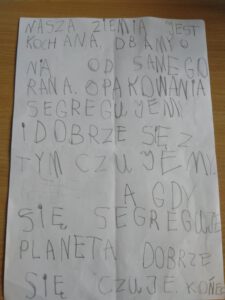 NASZA ZIEMIA JEST
KOCHANA. DBAMY O
NIĄ OD SAMEGO
RANA. OPAKOWANIA
SEGREGUJEMY
I DOBRZE SĘ Z
TYM CZUJEMY.
A GDY
SIĘ SEGREGUJE
PLANETA DOBRZE
SIĘ CZUJE. KONIEC